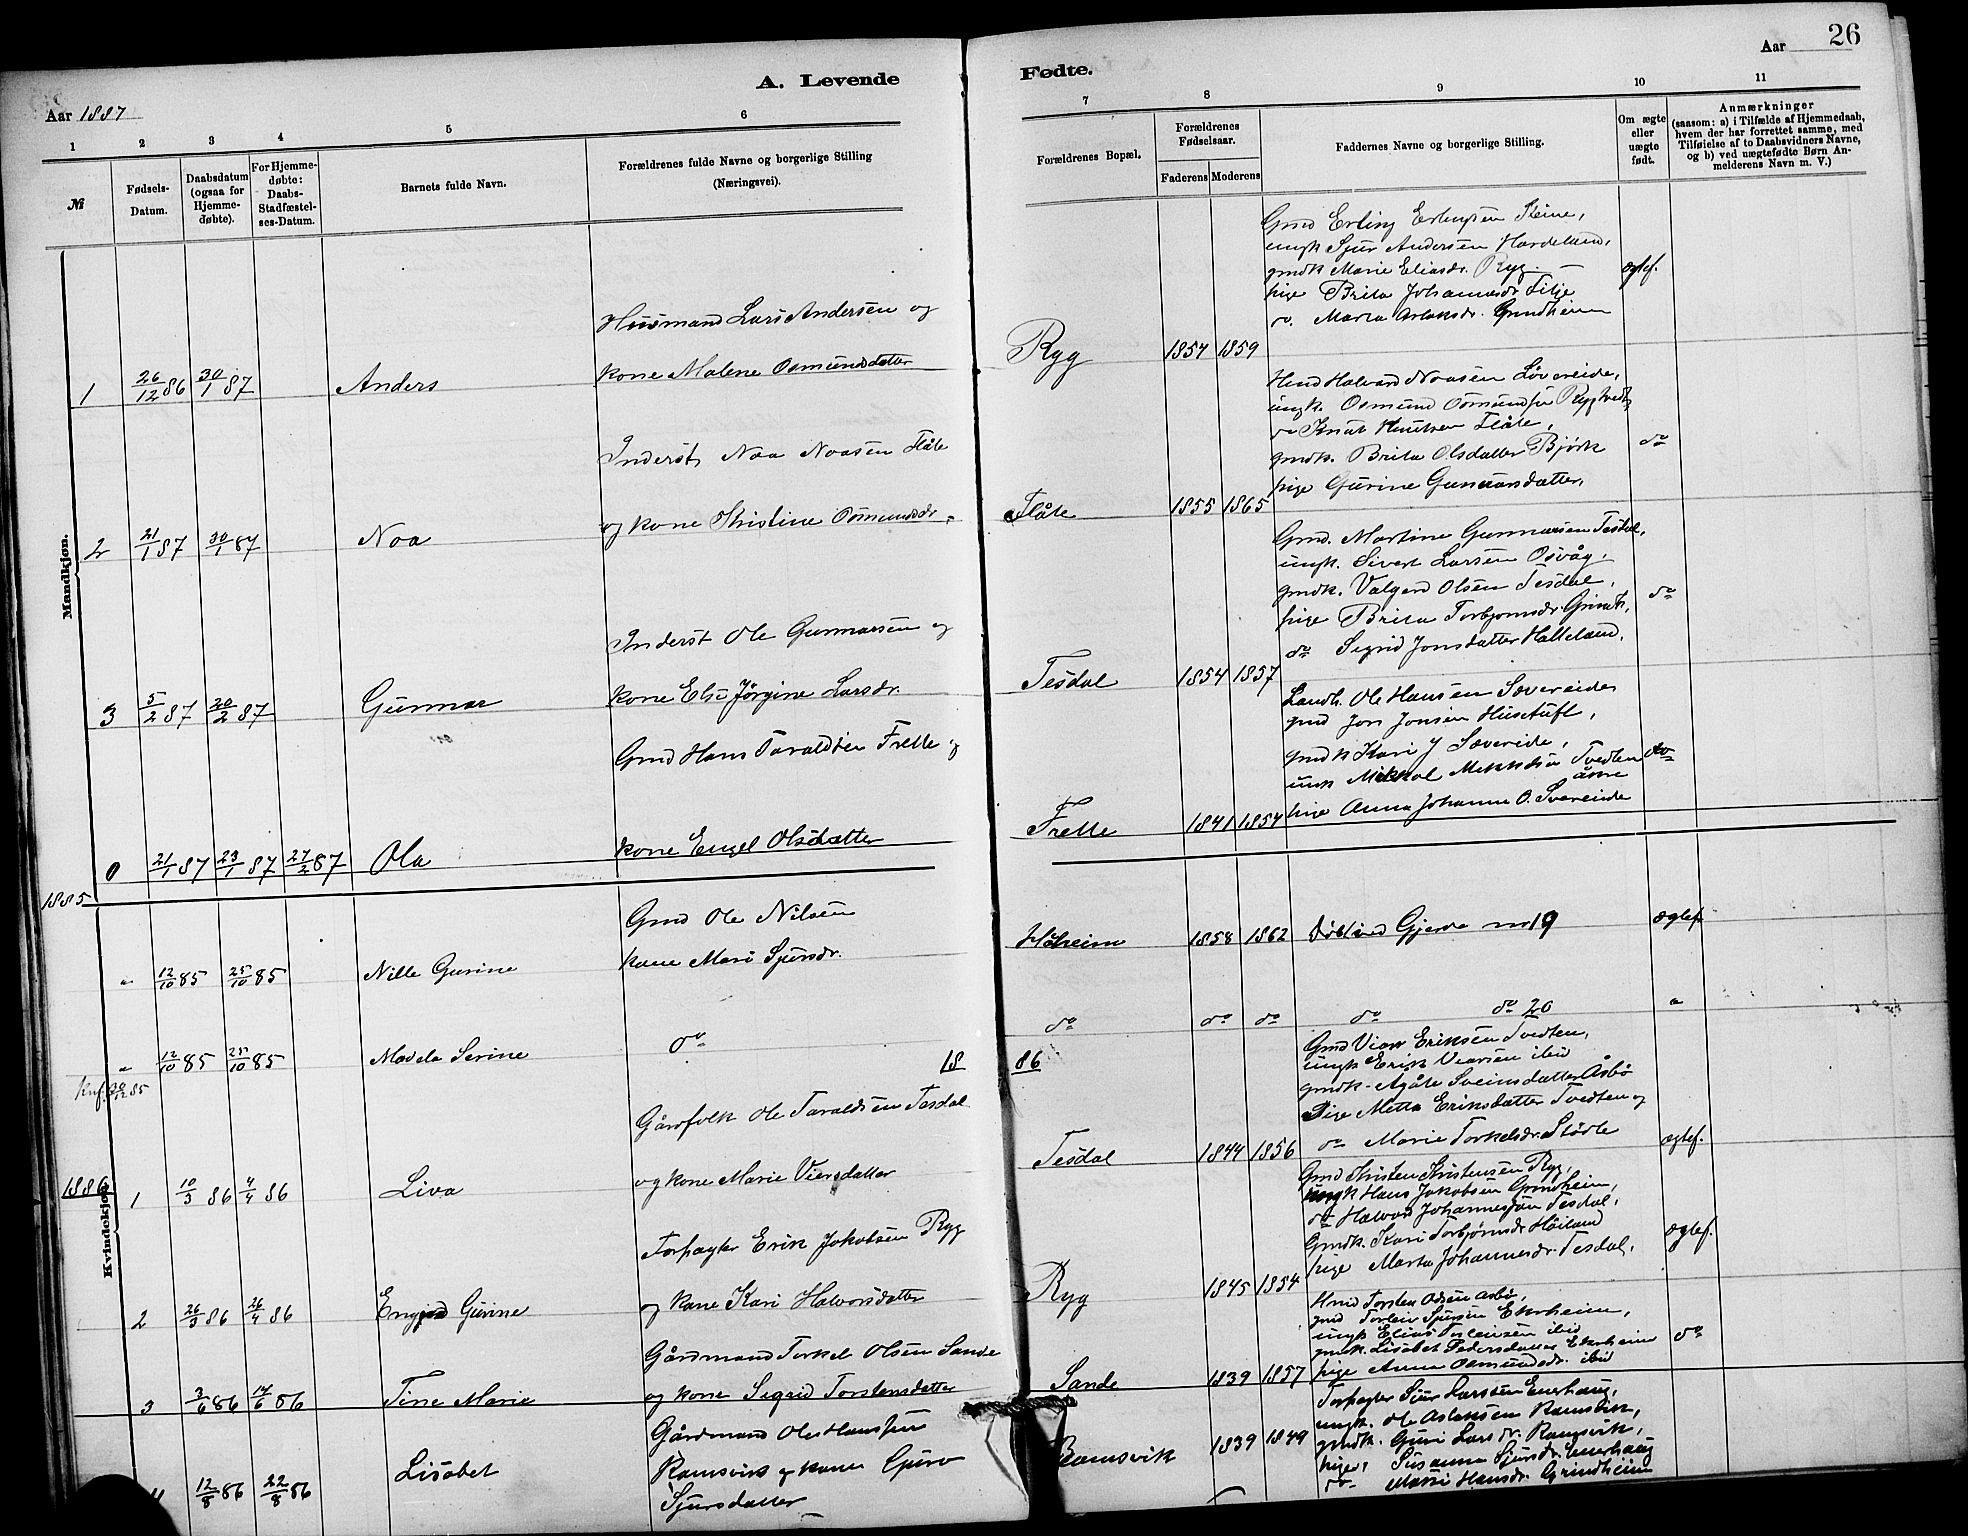 A. Levende
Fødte.
Aar 1887
Aar
26
1 2 3 4 5 6
7 8 9 10 11
№
Fødsels-Datum.
Daabsdatum (ogsaa for Hjemme-døbte).
For Hjemme-døbte: Daabs-Stadfæstel-ses-Datum.
Barnets fulde Navn.
Forældrenes fulde Navne og borgerlige Stilling (Næringsvei).
Forældrenes Bopæl.
Forældrenes Fødselsaar.
Faderens Moderens
Faddernes Navne og borgerlige Stilling.
Om ægte eller uægte født.
Anmærkninger
(saasom: a) i Tilfælde af Hjemmedaab, hvem der har forrettet samme, med Tilføielse af to Daabsvidners Navne, og b) ved uægtefødte Børn An-melderens Navn m. V.)
Mandkjøn.
1 26/12 86 30/1 87 Anders
Husmand Lars Andersen og
kone Malene Osmundsdatter
Ryg 1854 1859
Gmd Erling Erlingsen Steine,
ungk Sjur Andersen Hardeland,
gmdk Marie Eliasdr. Ryg
pige Brita Johannesdr Lilje
do. Marta Aslaksdr. Grindheim
ægtef.
2 21/1 87 30/1 87 Noa
Inderst Noa Noasen Flåte
og kone Kristine Osmundsdr.
Flåte 1855 1865
Hmd Halvard Noasen Løvereide,
ungk. Osmund Osmundsen
do Knut Knutsen Flåte,
gmdk. Brita Olsdatter Bjørk
pige Gurine Gunnarsdatter,
do
3 5/2 87 20/2 87 Gunnar
Inderst Ole Gunnarsen og
kone Else Jørgine Larsdr.
Tesdal 1854 1857
Gmd. Martine Gunnarsen Tesdal,
ungk. Sivert Larsen Osvåg,
gmdk. Valgerd Olsen Tesdal,
pige Brita Torbjørnsdr
do Sigrid Jonsdatter Halleland,
do
0 21/1 87 23/1 87 27/2 87 Ola
Gmd Hans Taraldsen Frette og
kone Engel Olsdatter
Frette 1841 1854
Landh. Ole Hansen Sævereide
gmd Jon Jonsen Husetuft,
gmdk Kari J Sævereide,
ungk Mikkal Mikkelsen Tvedten
åsne
pige Anna Johanne O. Svereide
do
1885
" 12/10 85 25/10 85 Nille Gurine
Gmd Ole Nilsen
kone Mari Sjursdr.
Håheim 1858 1862
Gjerde no 19
ægtef.
" 12/10 85 25/10 85 Serine
do
do do do do do 20 "
18 86
1886
Kvindekjøn.
1 10/3 86 4/4 86 Liva
Gårdfolk Ole Taraldsen Tesdal
og kone Marie Viersdatter
Tesdal 1844 1856
Gmd Viar Eriksen Tvedten,
ungk Erik Viarsen ibid
gmdk Agåte Sveinsdatter Åsbø
Pige Metta Eriksdatter Tvedten og
do Marie Torkelsdr. Stødle
ægtef.
2 26/3 86 26/4 86 Gurine
Forpagter Erik Jakobsen Ryg
og kone Kari Halvorsdatter
Ryg 1845 1854
Gmd Kristen Kristensen Ryg,
ungk Hans Jakobsen Grindheim,
do Halvard Johannessen Tesdal,
Gmdk. Kari Torbjørnsdr Høiland
pige Marta Johannesdr. Tesdal,
ægtef.
3 3/6 86 14/6 86 Tine Marie
Gårdmand Torkel Olsen Sande
og kone Sigrid Torstensdatter
Sande 1839 1857
Hmd Torsten Odsen Åsbø,
gmd Torleiv Sjursen Ekrheim,
ungk Elias Torleivsen ibid
gmdk Lisabet Pedersdatter Ekrheim
pige Anna Osmundsdr. ibid
do
4 12/8 86 22/8 86 Lisabet
Gårdmand Ole Hanssen
Ramsvik og kone Guro
Sjursdatter
Ramsvik 1839 1849
Forpagter Sjur Larssen Enerhaug,
ungk. Ole Aslaksen Ramsvik,
gmdk. Guri Larsdr. Ramsvik,
piger, Susanna Sjursdr. Enerhaug
do Marie Hansdr. Grindheim